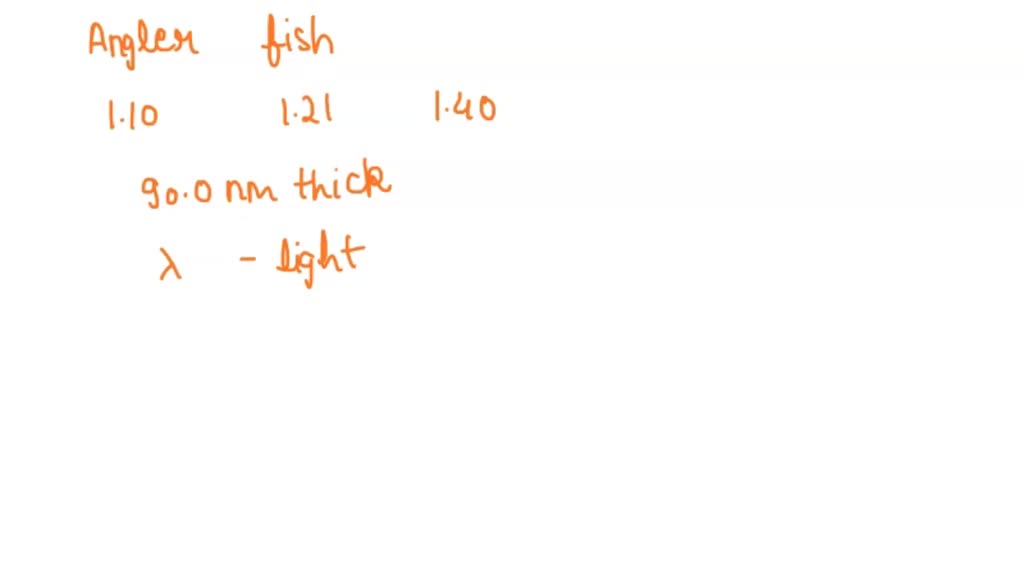 Angler fish
1.10 1.21 1.40
90.0 nm thick
λ - light